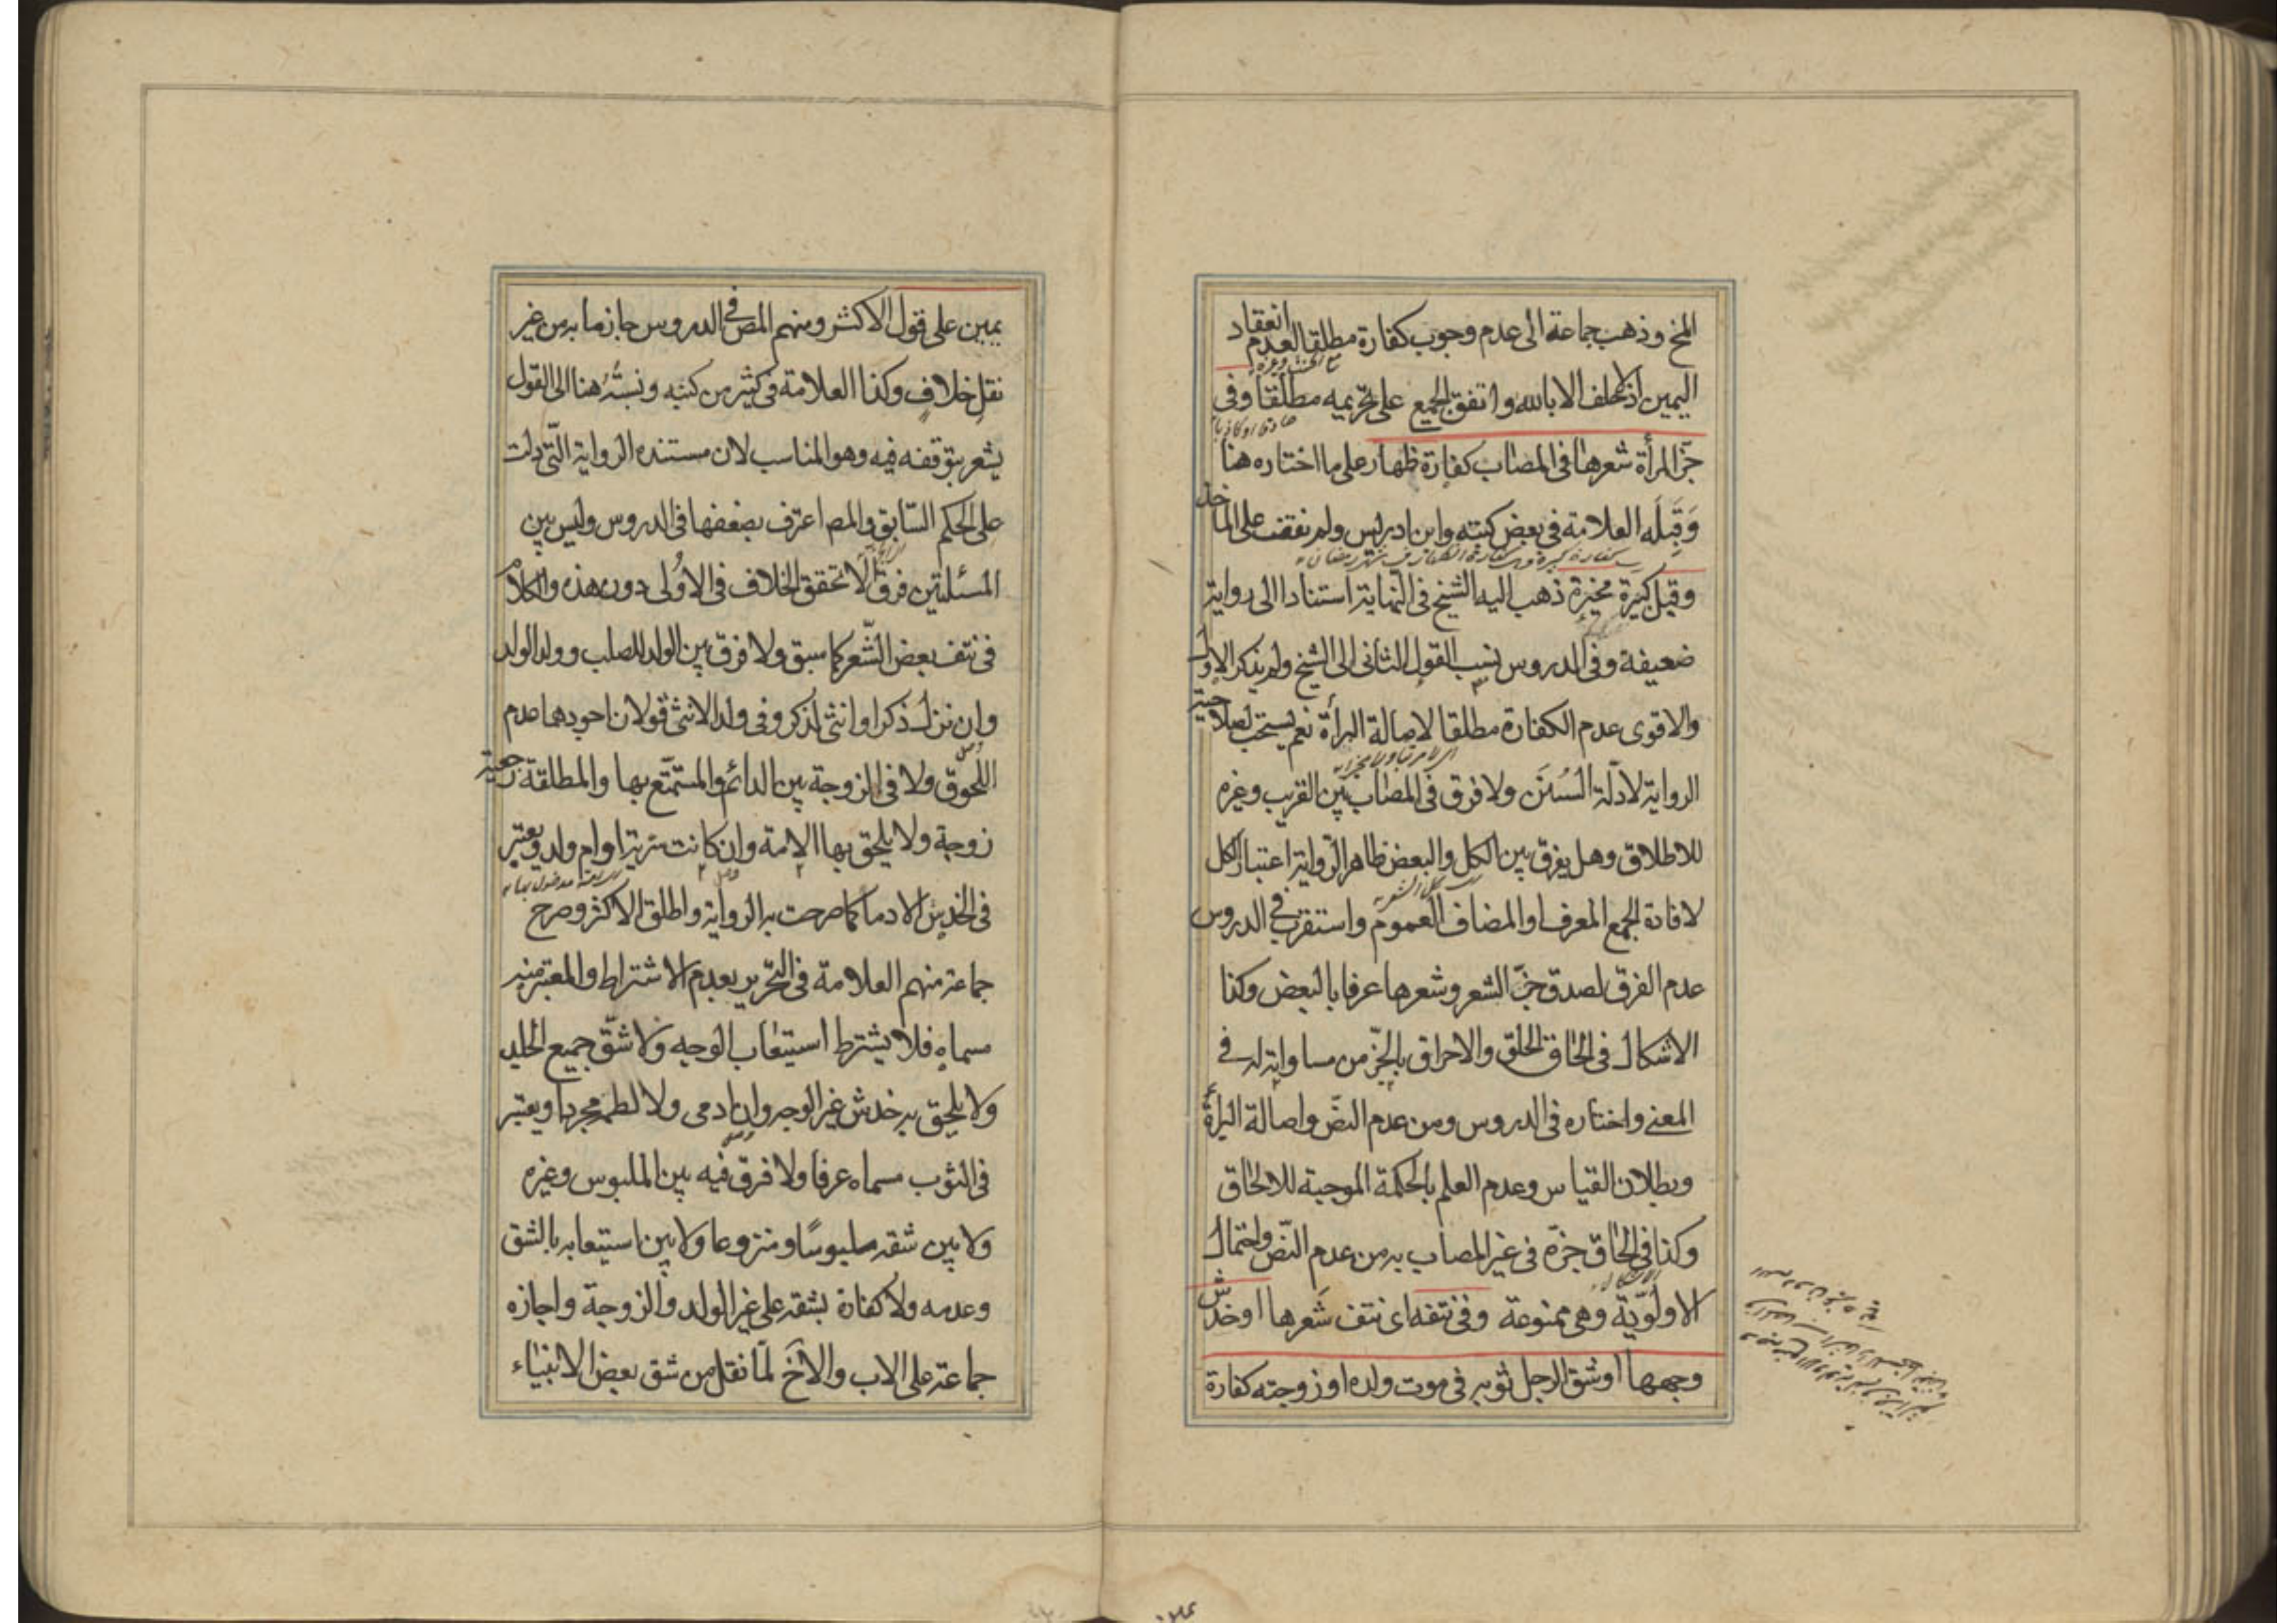 الخ وذهب جماعة الى عدم وجوب كفارة مطلقا لعدم انعقاد
مع الحنث وغيره
اليمين اذ لا حلف الا بالله واتفق الجميع على تحريمه مطلقا وفى
صادقا او كاذبا
جزّ المرأة شعرها فى المصاب كفارة ظهار على ما اختاره هنا
وَقَبِلَه العلامة فى بعض كتبه وابن ادريس ولم نقف على المأخذ
وقيل كبيرة مخيرة ذهب اليه الشيخ فى النهاية استنادا الى رواية
ضعيفة وفى الدروس نسب القول الثانى الى الشيخ ولم يذكر الاول
والاقوى عدم الكفارة مطلقا لاصالة البرأة نعم يستحب لصلاحية
الرواية لادلّة السُنَن ولا فرق فى المصاب بين القريب وغيره
للاطلاق وهل يفرق بين الكل والبعض ظاهر الرّواية اعتبار الكل
لافادة الجمع المعرف او المضاف العموم واستقرب فى الدروس
عدم الفرق لصدق جزّ الشعر وشعرها عرفا بالبعض وكذا
الاشكال فى الحاق الحلق والاحراق بالجزّ من مساواته له فى
المعنى واختاره فى الدروس ومن عدم النصّ واصالة البرأة
وبطلان القياس وعدم العلم بالحكمة الموجبة للالحاق
وكذا فى الحاق جزّه فى غير المصاب به من عدم النصّ واحتمال
الاولويّة وهى ممنوعة وفى نتفه اى نتف شَعرها او خدش
وجهها او شق الرجل ثوبه فى موت ولده او زوجته كفارة
يمين على قول الاكثر ومنهم المص فى الدروس جازما به من غير
نقل خلافٍ وكذا العلامة فى كثير من كتبه ونسبتُه هنا الى القول
يشعر بتوقفه فيه وهو المناسب لان مستنده الرواية الّتى دلت
على الحكم السّابق والمص اعترف بضعفها فى الدروس وليس بين
المسئلتين فرق الا تحقق الخلاف فى الاولى دون هذه والكلام
فى نتف بعض الشّعر كما سبق ولا فرق بين الولد للصلب وولد الولد
وان نزل ذكرا او انثى لذكر وفى ولد الانثى قولان اجودهما عدم
اللحوق ولا فى الزوجة بين الدائم والمستمتّع بها والمطلقة رجعية
زوجة ولا يلحق بها الامة وان كانت سرية او ام ولد ويعتبر
فى الخدش الادما كما صرحت به الرواية واطلق الاكثر وصرح
جماعة منهم العلامة فى التحرير بعدم الاشتراط والمعتبر منه
مسماه فلا يشترط استيعاب الوجه ولا شقّ جميع الجلد
ولا يلحق به خدش غير الوجه وان ادمى ولا لطمه مجردا ويعتبر
فى الثوب مسماه عرفا ولا فرق فيه بين الملبوس وغيره
ولا بين شقه ملبوسًا ومنزوعا ولا بين استيعابه بالشق
وعدمه ولا كفارة بشقه على غير الولد والزوجة واجازه
جماعة على الاب والاخ لمّا نقل من شق بعض الانبياء